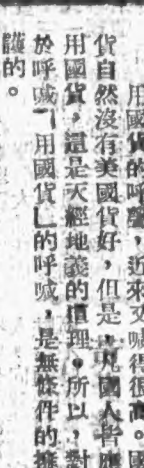 用國貨的呼聲，近來又喊得很高。國
貨自然沒有美國貨好，但是，凡國人皆應
用國貨，還是天經地義的道理。所以，對
於呼喊「用國貨」的呼喊，是無條件的擁
護的。